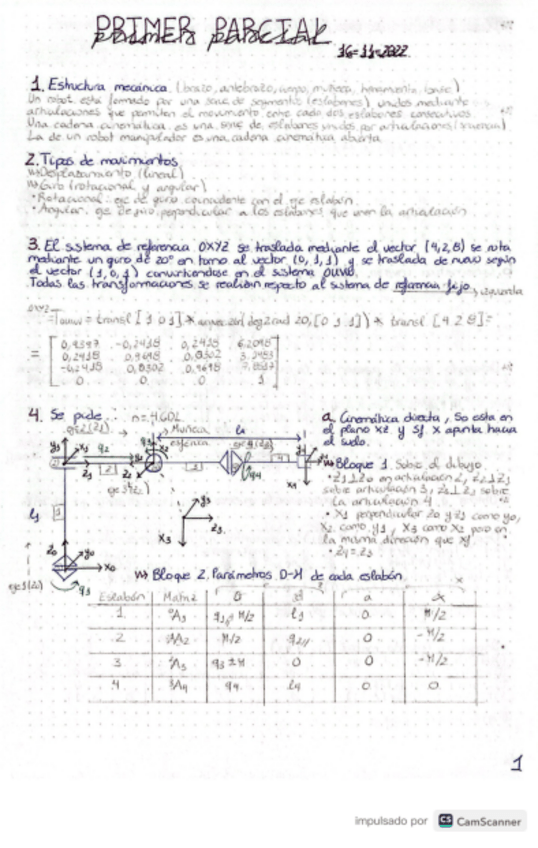 PRIMER PARCIAL
16-11-2022
1. Estructura mecánica. (brazo, antebrazo, cuerpo, muñeca, herramienta, base)
Un robot está formado por una serie de segmentos (eslabones) unidos mediante
articulaciones que permiten el movimiento entre cada dos eslabones consecutivos
Una cadena cinemática es una serie de eslabones unidos por articulaciones
La de un robot manipulador es una cadena cinemática abierta
2. Tipos de movimientos
Desplazamiento (lineal)
Giro (rotacional y angular)
· Rotacional: eje de giro coincidente con el eje eslabón.
· Angular: eje de giro perpendicular a los eslabones que unen la articulación.
3. El sistema de referencia OXYZ se traslada mediante el vector (4,2,8) se rota
mediante un giro de 20° en torno al vector (0,1,1) y se traslada de nuevo según
el vector (1,0,1) convirtiendose en el sistema OUVW.
Todas las transformaciones se realizan respecto al sistema de referencia fijo, izquierda
OXYZ Touvw = transl [1 0 1] * (deg2rad 20, [0 1 1]) * transl [4 2 8] =
= 0,9397 -0,2418 0,2418
0,2418 0,9698 0,0302
-0,2418 0,0302 0,9698
0 0 0 1
4. Se pide: n=4 GDL
a. Cinemática directa, S0 esta en
el plano XZ y S4 X apunta hacia
el suelo.
Muñeca
esférica
Bloque 1. Sobre el dibujo
sobre articulación 3,
la articulación 4
· X1 perpendicular Z0 y Z1 como y0,
X2 como y1, X3 como X2 pero en
la misma dirección que X4
· Z4 = Z3
Bloque 2. Parámetros D-H de cada eslabón.
Eslabón Matriz θ d a α
1 ⁰A1 l1 0 π/2
2 ¹A2 π/2 0 -π/2
3 ²A3 0 0 -π/2
4 ³A4 q4 l4 0 0
1
impulsado por CS CamScanner